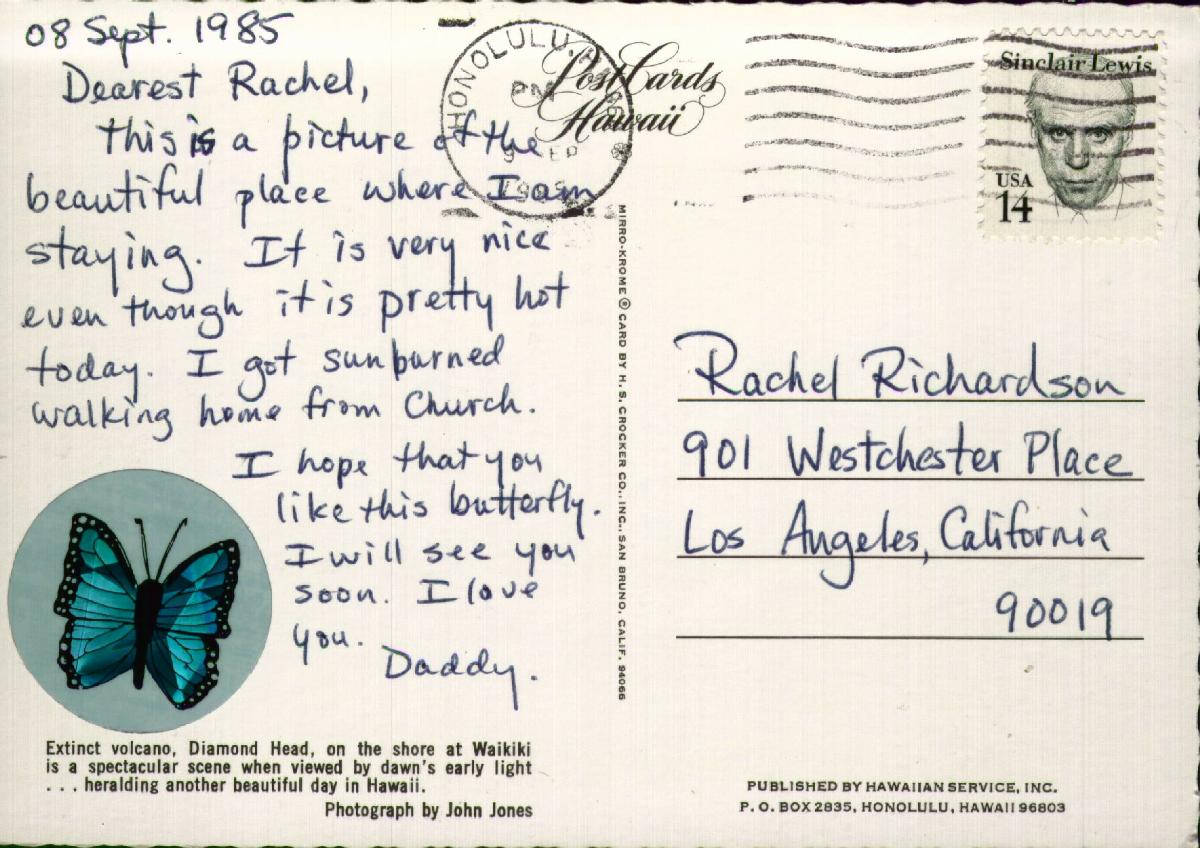 08 Sept. 1985
Dearest Rachel,
this is a picture of the
beautiful place where I am
staying. It is very nice
even though it is pretty hot
today. I got sunburned
walking home from Church.
I hope that you
like this butterfly.
I will see you
soon. I love
you.
Daddy.
Extinct volcano, Diamond Head, on the shore at Waikiki
is a spectacular scene when viewed by dawn's early light
... heralding another beautiful day in Hawaii.
Photograph by John Jones
HONOLULU,
PM
1985
Post Cards
Hawaii
MIRRO-KROME ® CARD BY H. S. CROCKER CO., INC., SAN BRUNO, CALIF. 94066
Sinclair Lewis
USA
14
Rachel Richardson
901 Westchester Place
Los Angeles, California
90019
PUBLISHED BY HAWAIIAN SERVICE, INC.
P. O. BOX 2835, HONOLULU, HAWAII 96803